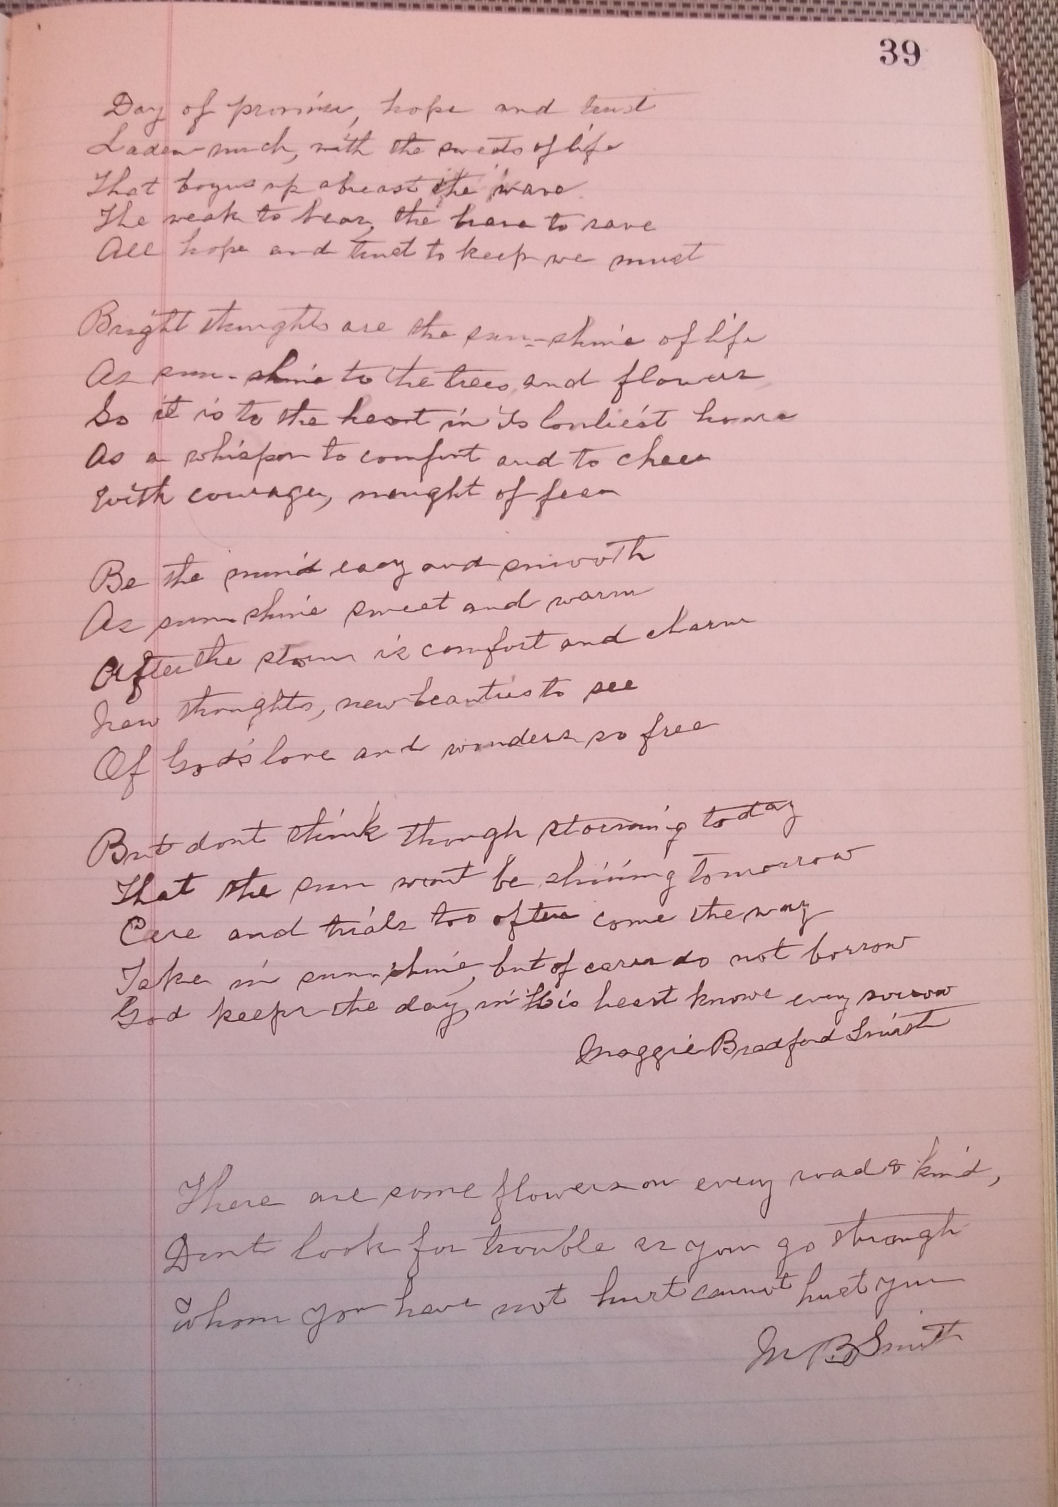 39
Day of promise, hope and trust
Laden much, with the sweets of life
That up abreast the wave
The weak to bear, the brave to save
All hope and trust to keep we must
Bright thoughts are the sun-shine of life
As sun-shine to the trees and flowers
So it is to the heart in its lonliest home
As a whisper to comfort and to cheer
With courage, nought of fear
Be the mind easy and smooth
As sunshine sweet and warm
After the storm is comfort and charm
New thoughts, new beauties to see
Of God's love and wonders so free
But dont think though storming today
That the sun wont be shining tomorrow
Care and trials too often come the way
Take in sunshine, but of cares do not borrow
God keeps the day, in His heart knows every sorrow
Maggie Bradford Smith
There are some flowers on every road & kind,
Dont look for trouble as you go through
Whom you have not hurt cannot hurt you
M B Smith